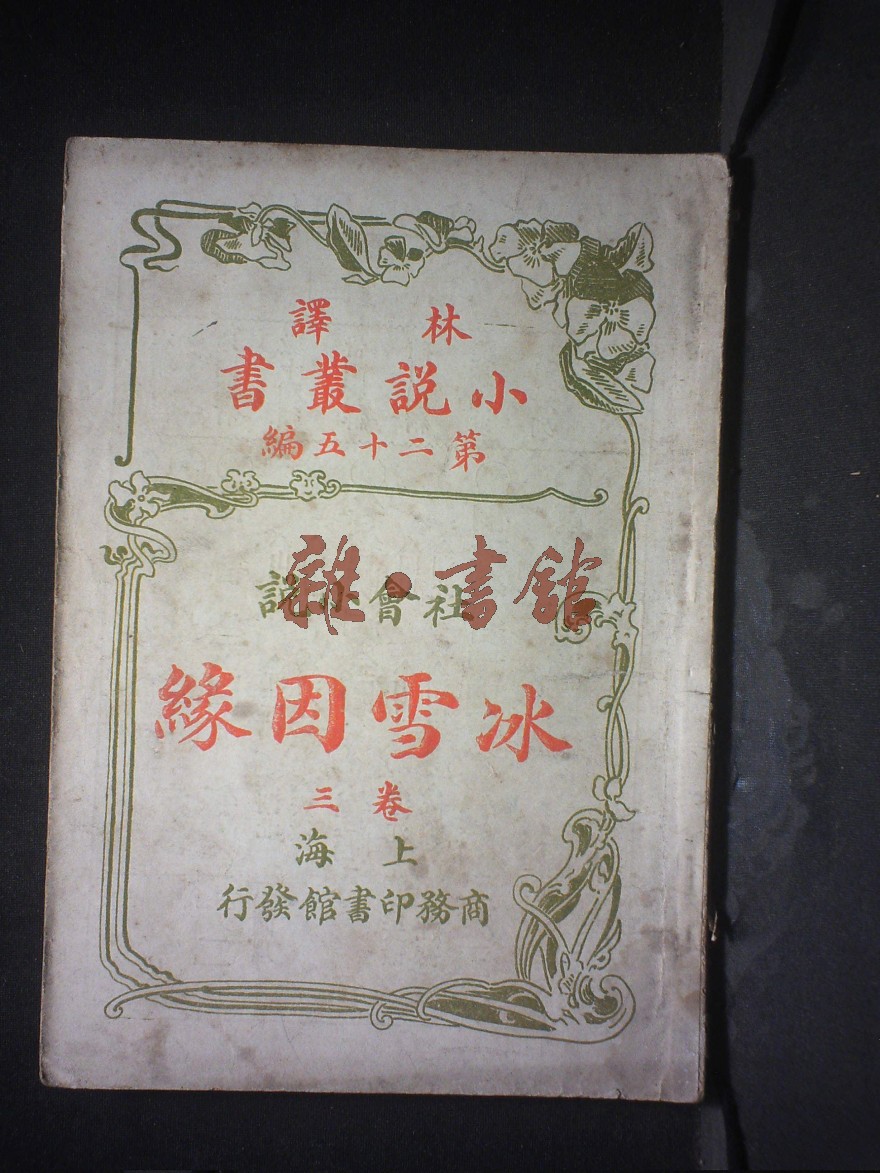 林譯
小説叢書
第二十五編
社會小説
雜·書館
冰雪因緣
卷三
上海
商務印書館發行